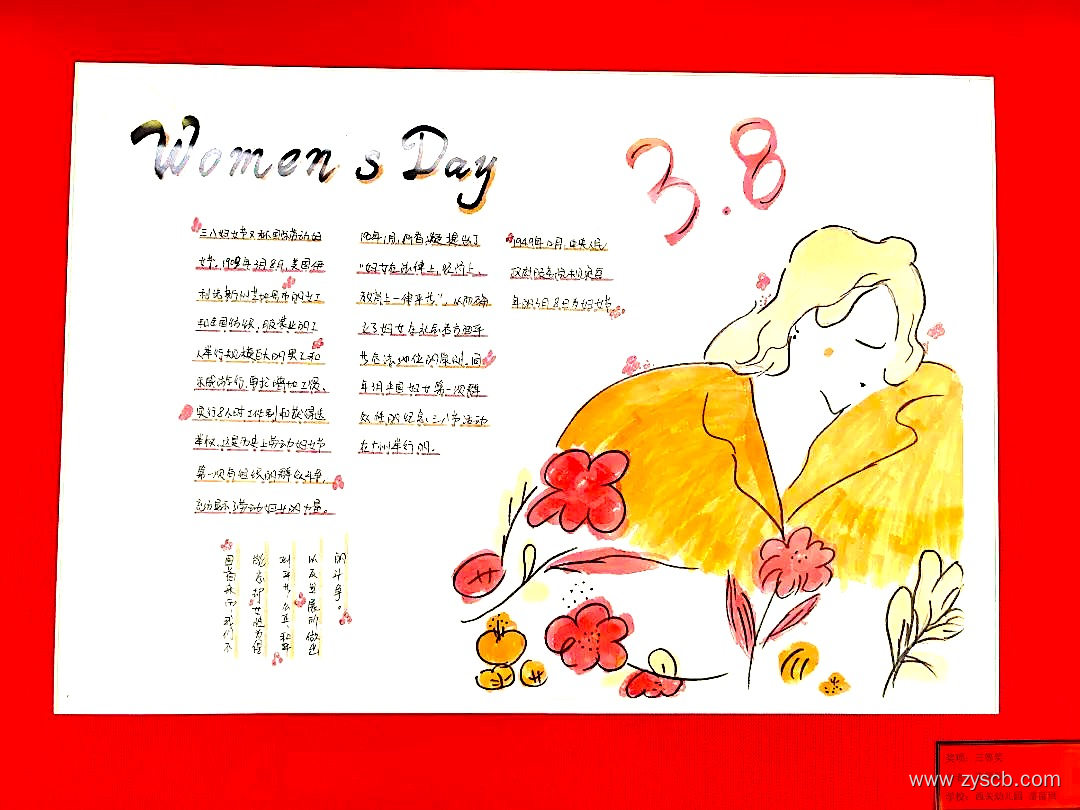 Women's Day
3.8
三八妇女节又称国际劳动妇
女节。1909年3月8日,美国伊
利诺斯州芝加哥市的女工
和全国纺织、服装业的工
人举行规模巨大的罢工和
示威游行,要求增加工资、
实行8小时工作制和获得选
举权。这是历史上劳动妇女
第一次有组织的群众斗争,
充分显示了劳动妇女的力量。
"妇女在法律上、经济上、
教育上一律平等",从而确
立了妇女在社会各方面平
年3月
中国妇女第一次群
众性的纪念三八节活动
在广州举行的。
1949年12月,中央人民
政府
年的3月8日为妇女节
回首来历,我们不
能忘却女性为
对平等、公正、和平
以及发展所做出
的斗争。
奖项:三等奖
www.zyscb.com